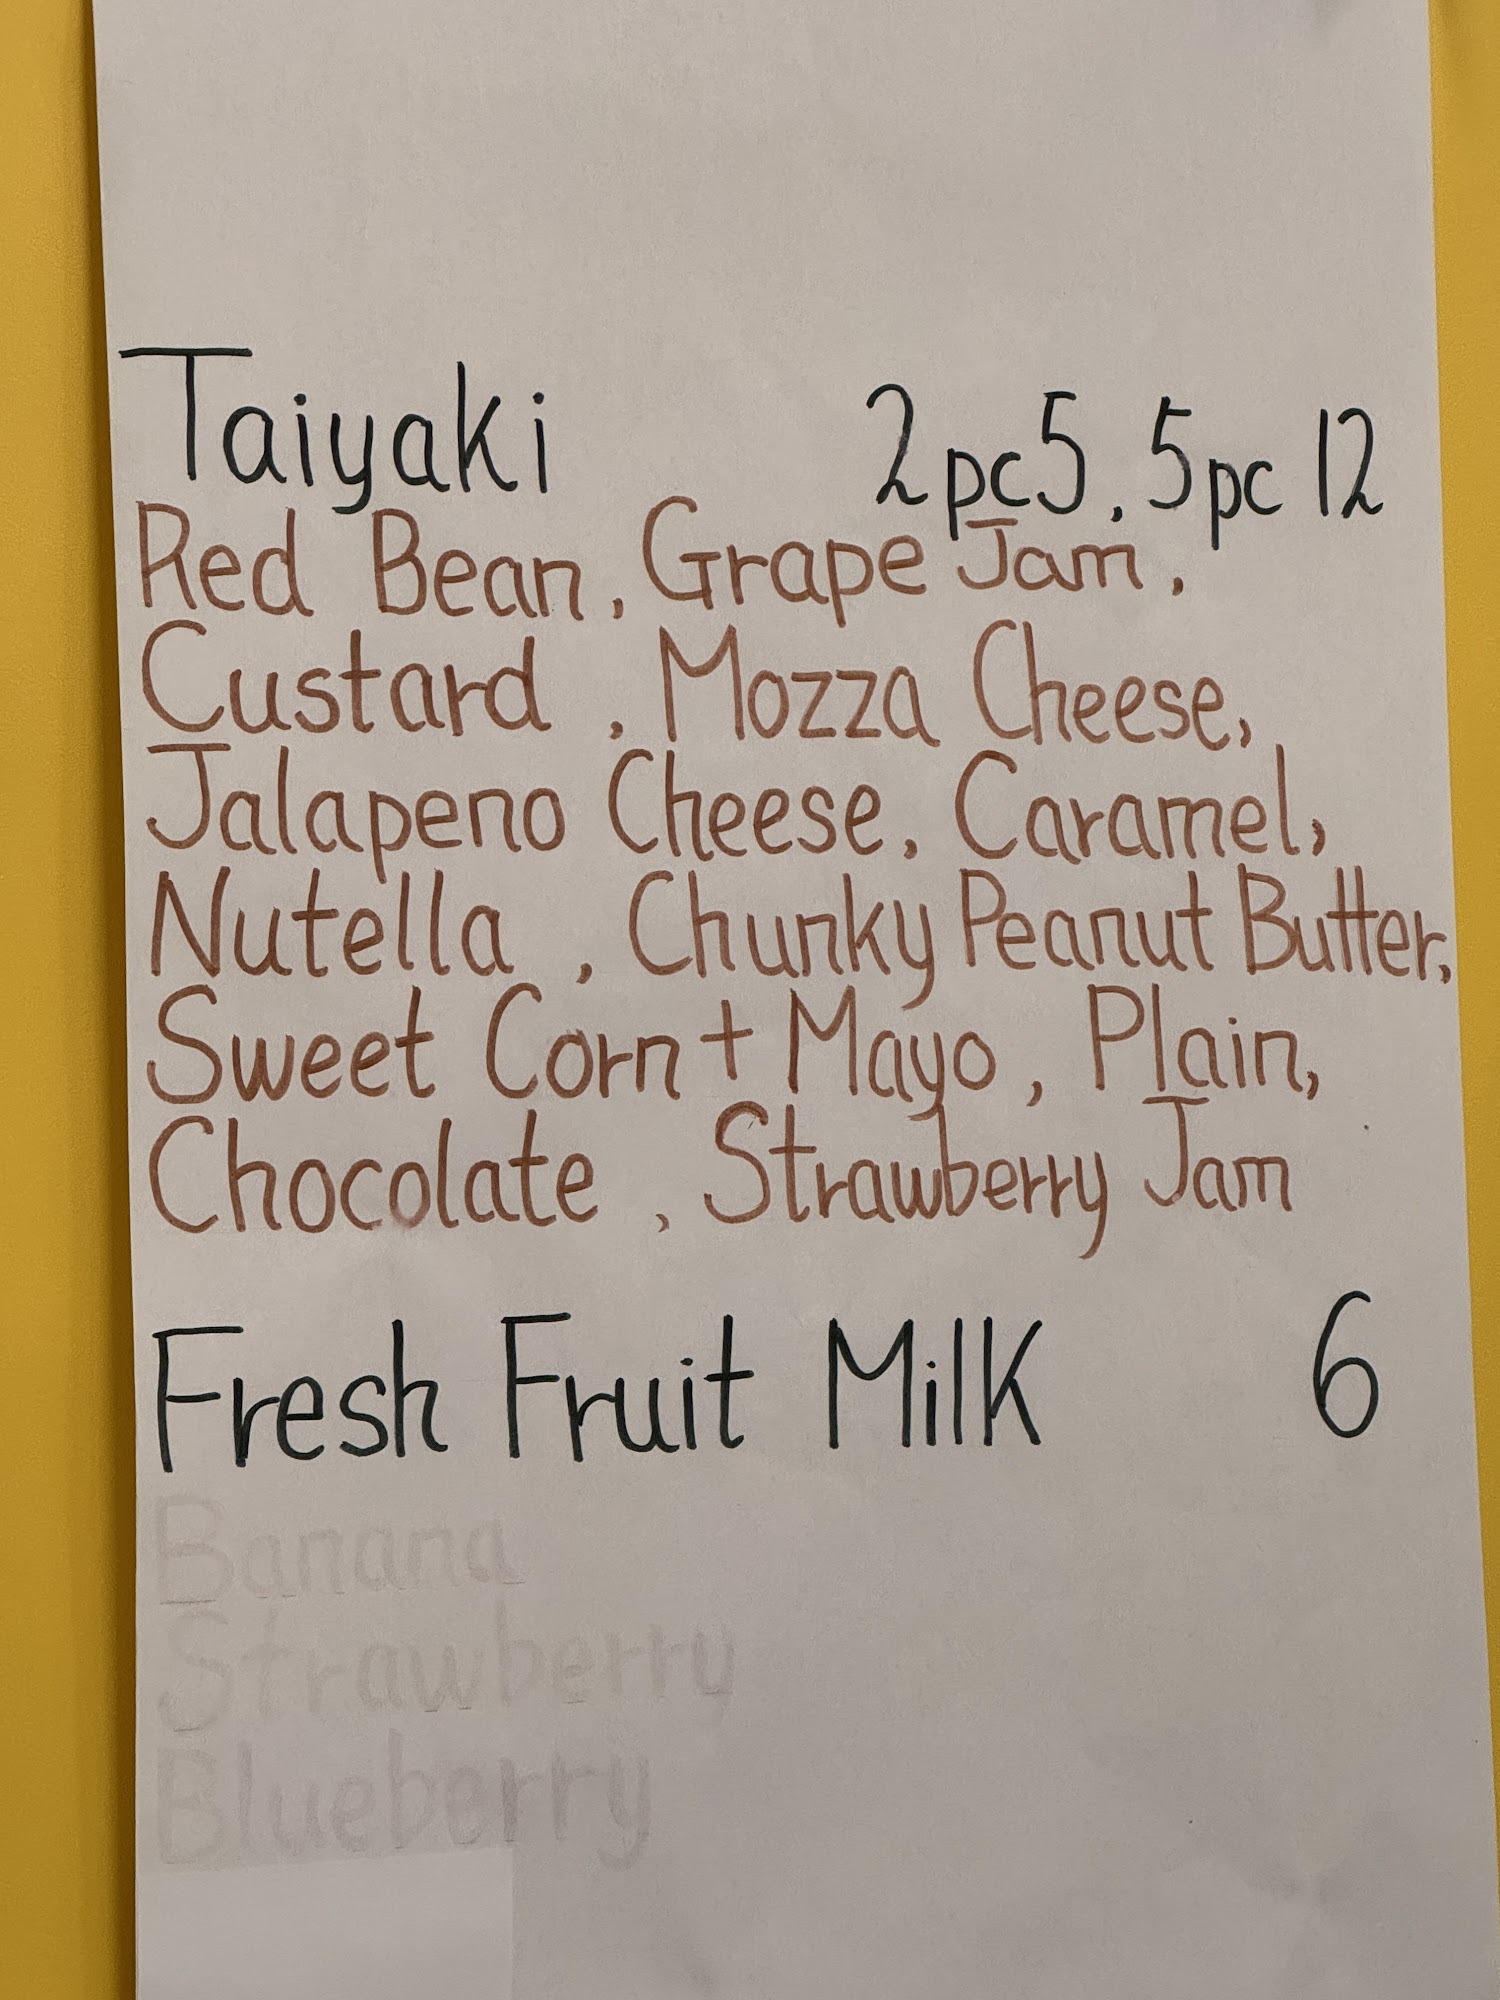 Taiyaki 2pc5, 5pc 12
Red Bean, Grape Jam,
Custard, Mozza Cheese,
Jalapeno Cheese, Caramel,
Nutella, Chunky Peanut Butter,
Sweet Corn + Mayo, Plain,
Chocolate, Strawberry Jam
Fresh Fruit Milk 6
Banana
Strawberry
Blueberry